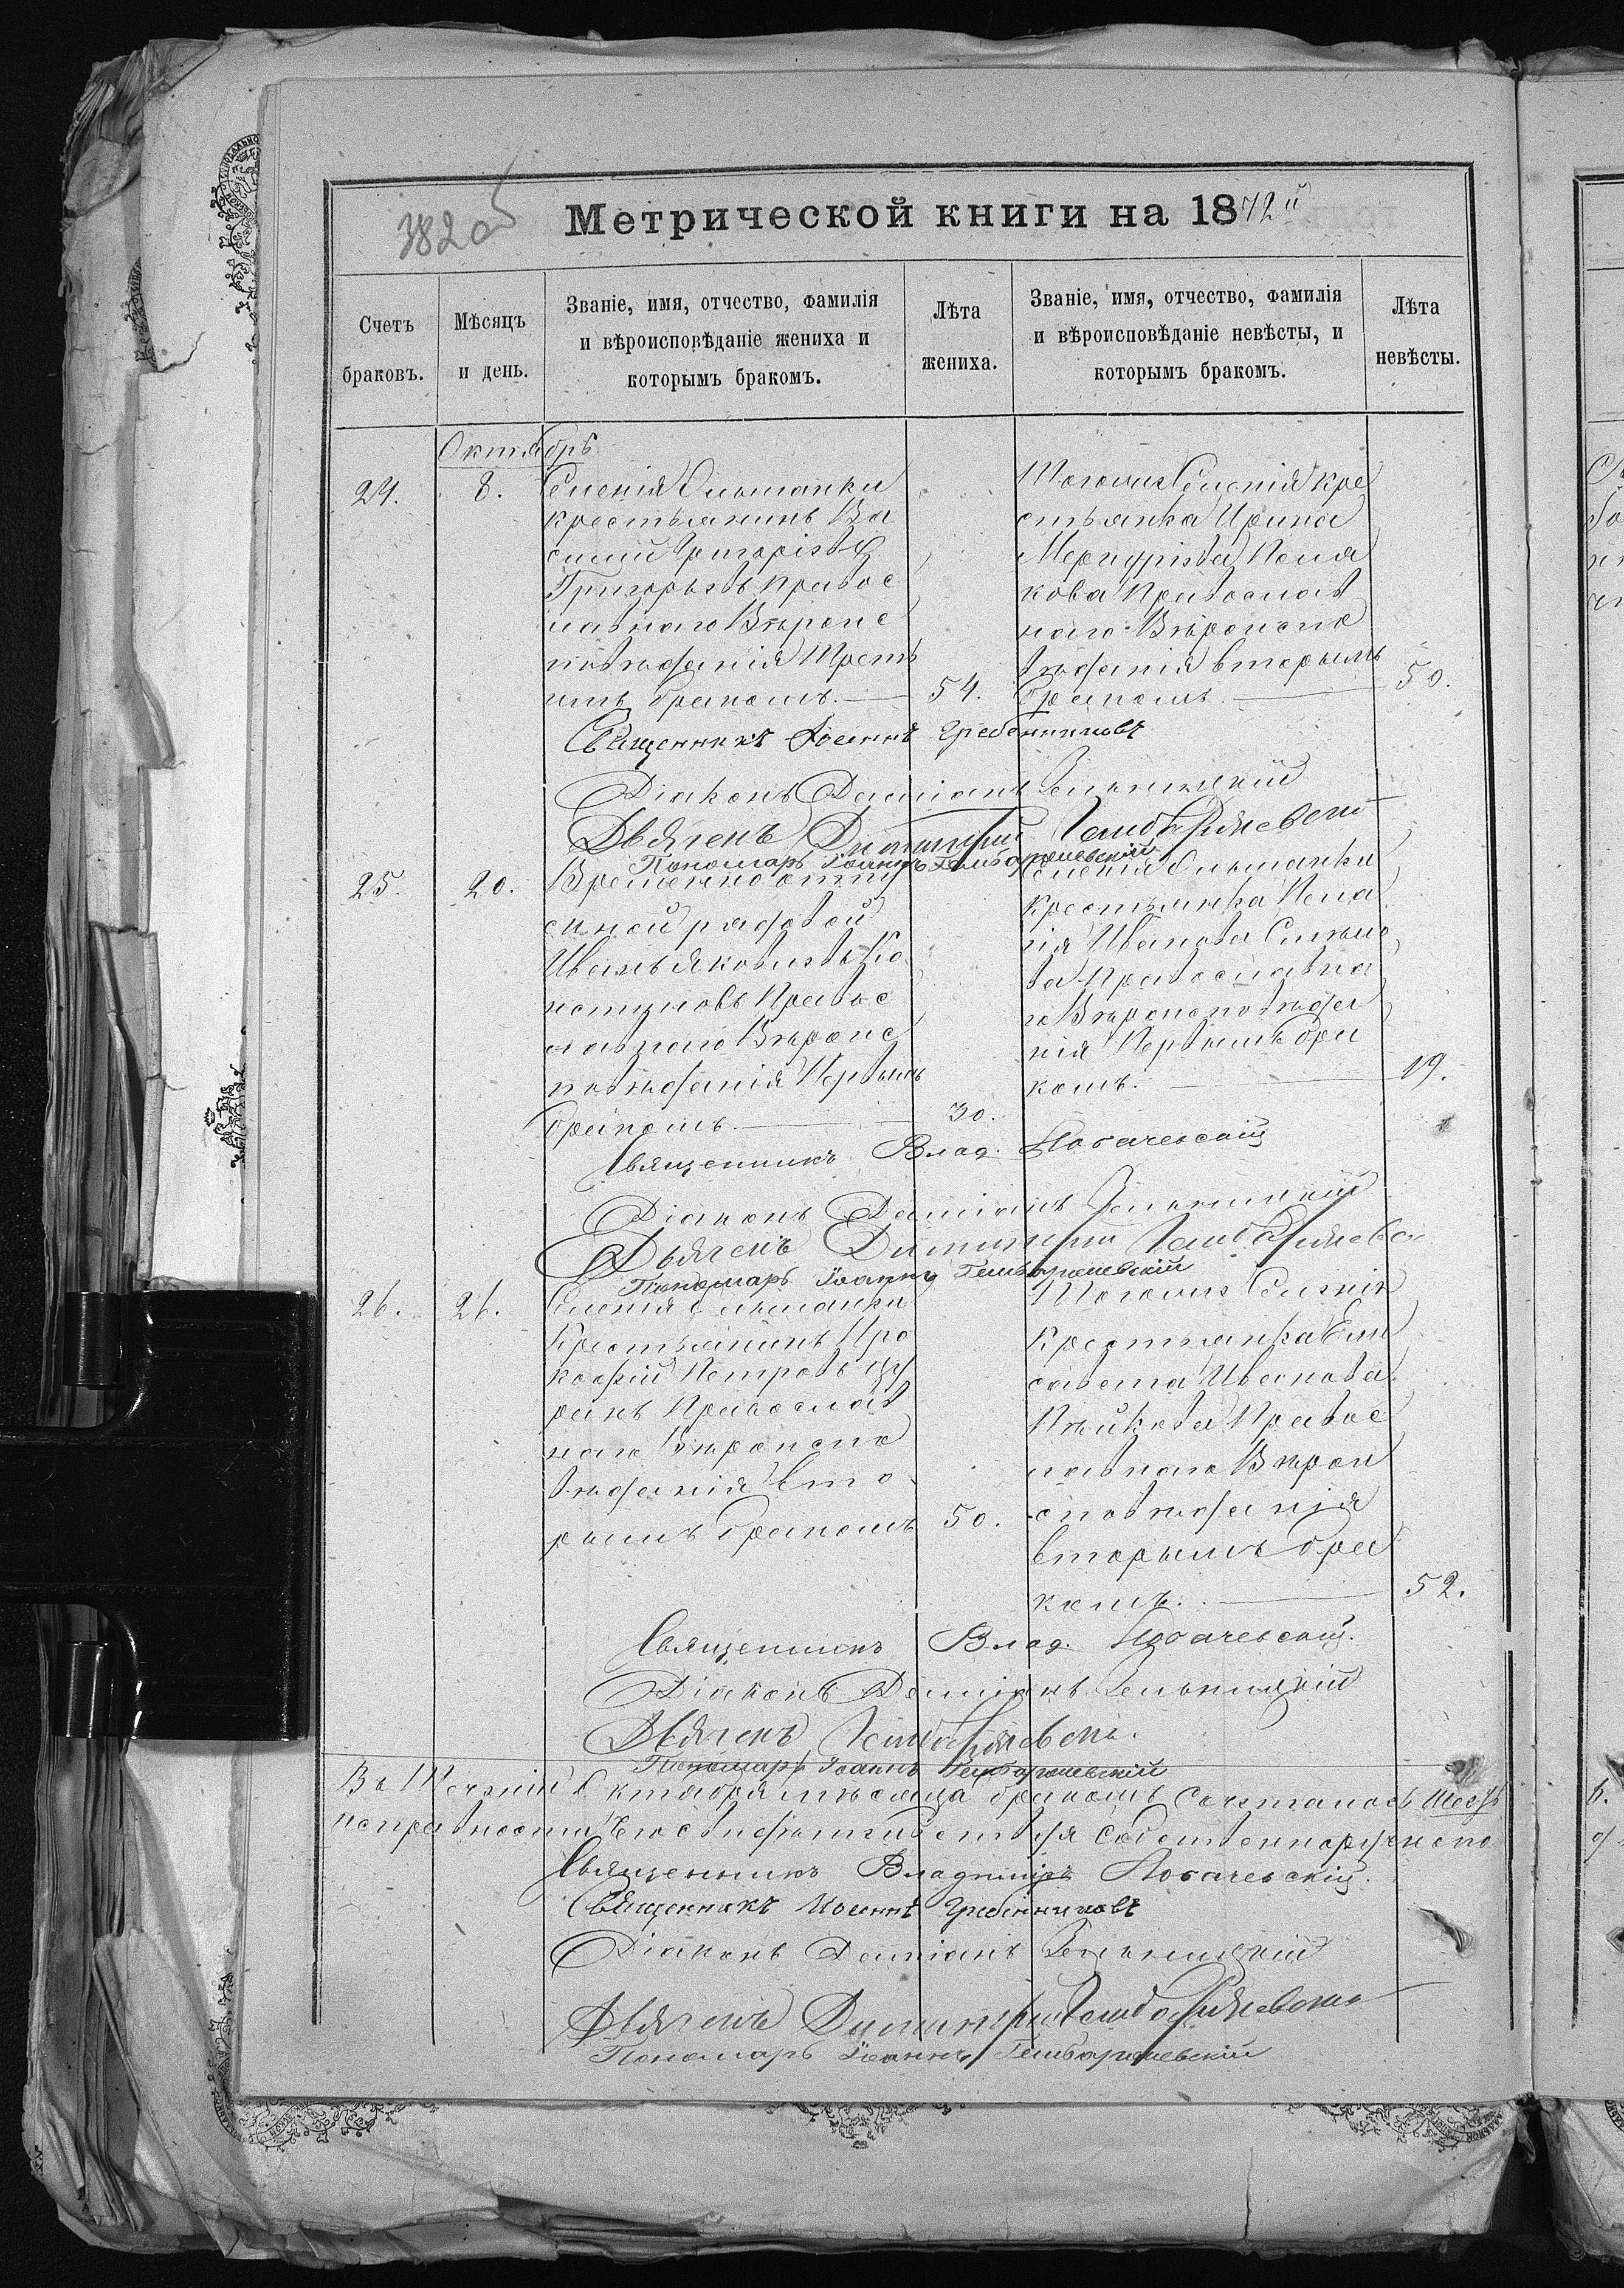 382 об
Метрической книги на 1872й
Счетъ браковъ.
Мѣсяцъ и день.
Званіе, имя, отчество, фамилія и вѣроисповѣданіе жениха и которымъ бракомъ.
Лѣта жениха.
Званіе, имя, отчество, фамилія и вѣроисповѣданіе невѣсты, и которымъ бракомъ.
Лѣта невѣсты.
Октябрь
24.
8.
Селенія Ольшанки
крестьянинъ Ва
силій Григоріевъ
Григорьевъ Правос
лавнаго Вѣроис
повѣданія Треть
имъ бракомъ.
54.
Тогожъ Селенія кре
стьянка Ирина
Меркуріева Поля
кова Православ
наго Вѣроиспо
вѣданія вторымъ
бракомъ.
50.
Священникъ Іоаннъ Гребенниковъ
Діаконъ Даміанъ
Дьячекъ Димитрій
Пономарь Іоаннъ
25.
20.
Временно отпу
скной рядовой
Иванъ Яковлевъ Ко
Правос
лавнаго Вѣроис
повѣданія Первымъ
бракомъ
30.
Селенія Ольшанки
Крестьянка Пела
гія Иванова
ва Православна
го Вѣроисповѣда
нія Первымъ бра
комъ.
19.
Священникъ Влад. Логачевскій
Діаконъ Даміанъ
Дьячекъ Димитрій
Пономарь Іоаннъ
26.
26.
Селенія Ольшанки
Крестьянинъ Про
кофій Петровъ
Православ
наго Вѣроиспо
вѣданія Вто
рымъ бракомъ
50.
Тогожъ Селенія
Крестьянка Ели
савета Иванова
Правос
лавнаго Вѣрои
споведанія
вторымъ бра
комъ.
52.
Священникъ Влад. Логачевскій.
Діаконъ Даміанъ
Дьячекъ
Пономарь Іоаннъ
Въ Теченіи Октября мѣсяца бракомъ Сочталось
исправности
Священникъ Владиміръ Логачевскій.
Священникъ Іоаннъ Гребенниковъ
Діаконъ Даміанъ
Дьячекъ Димитрій
Пономарь Іоаннъ